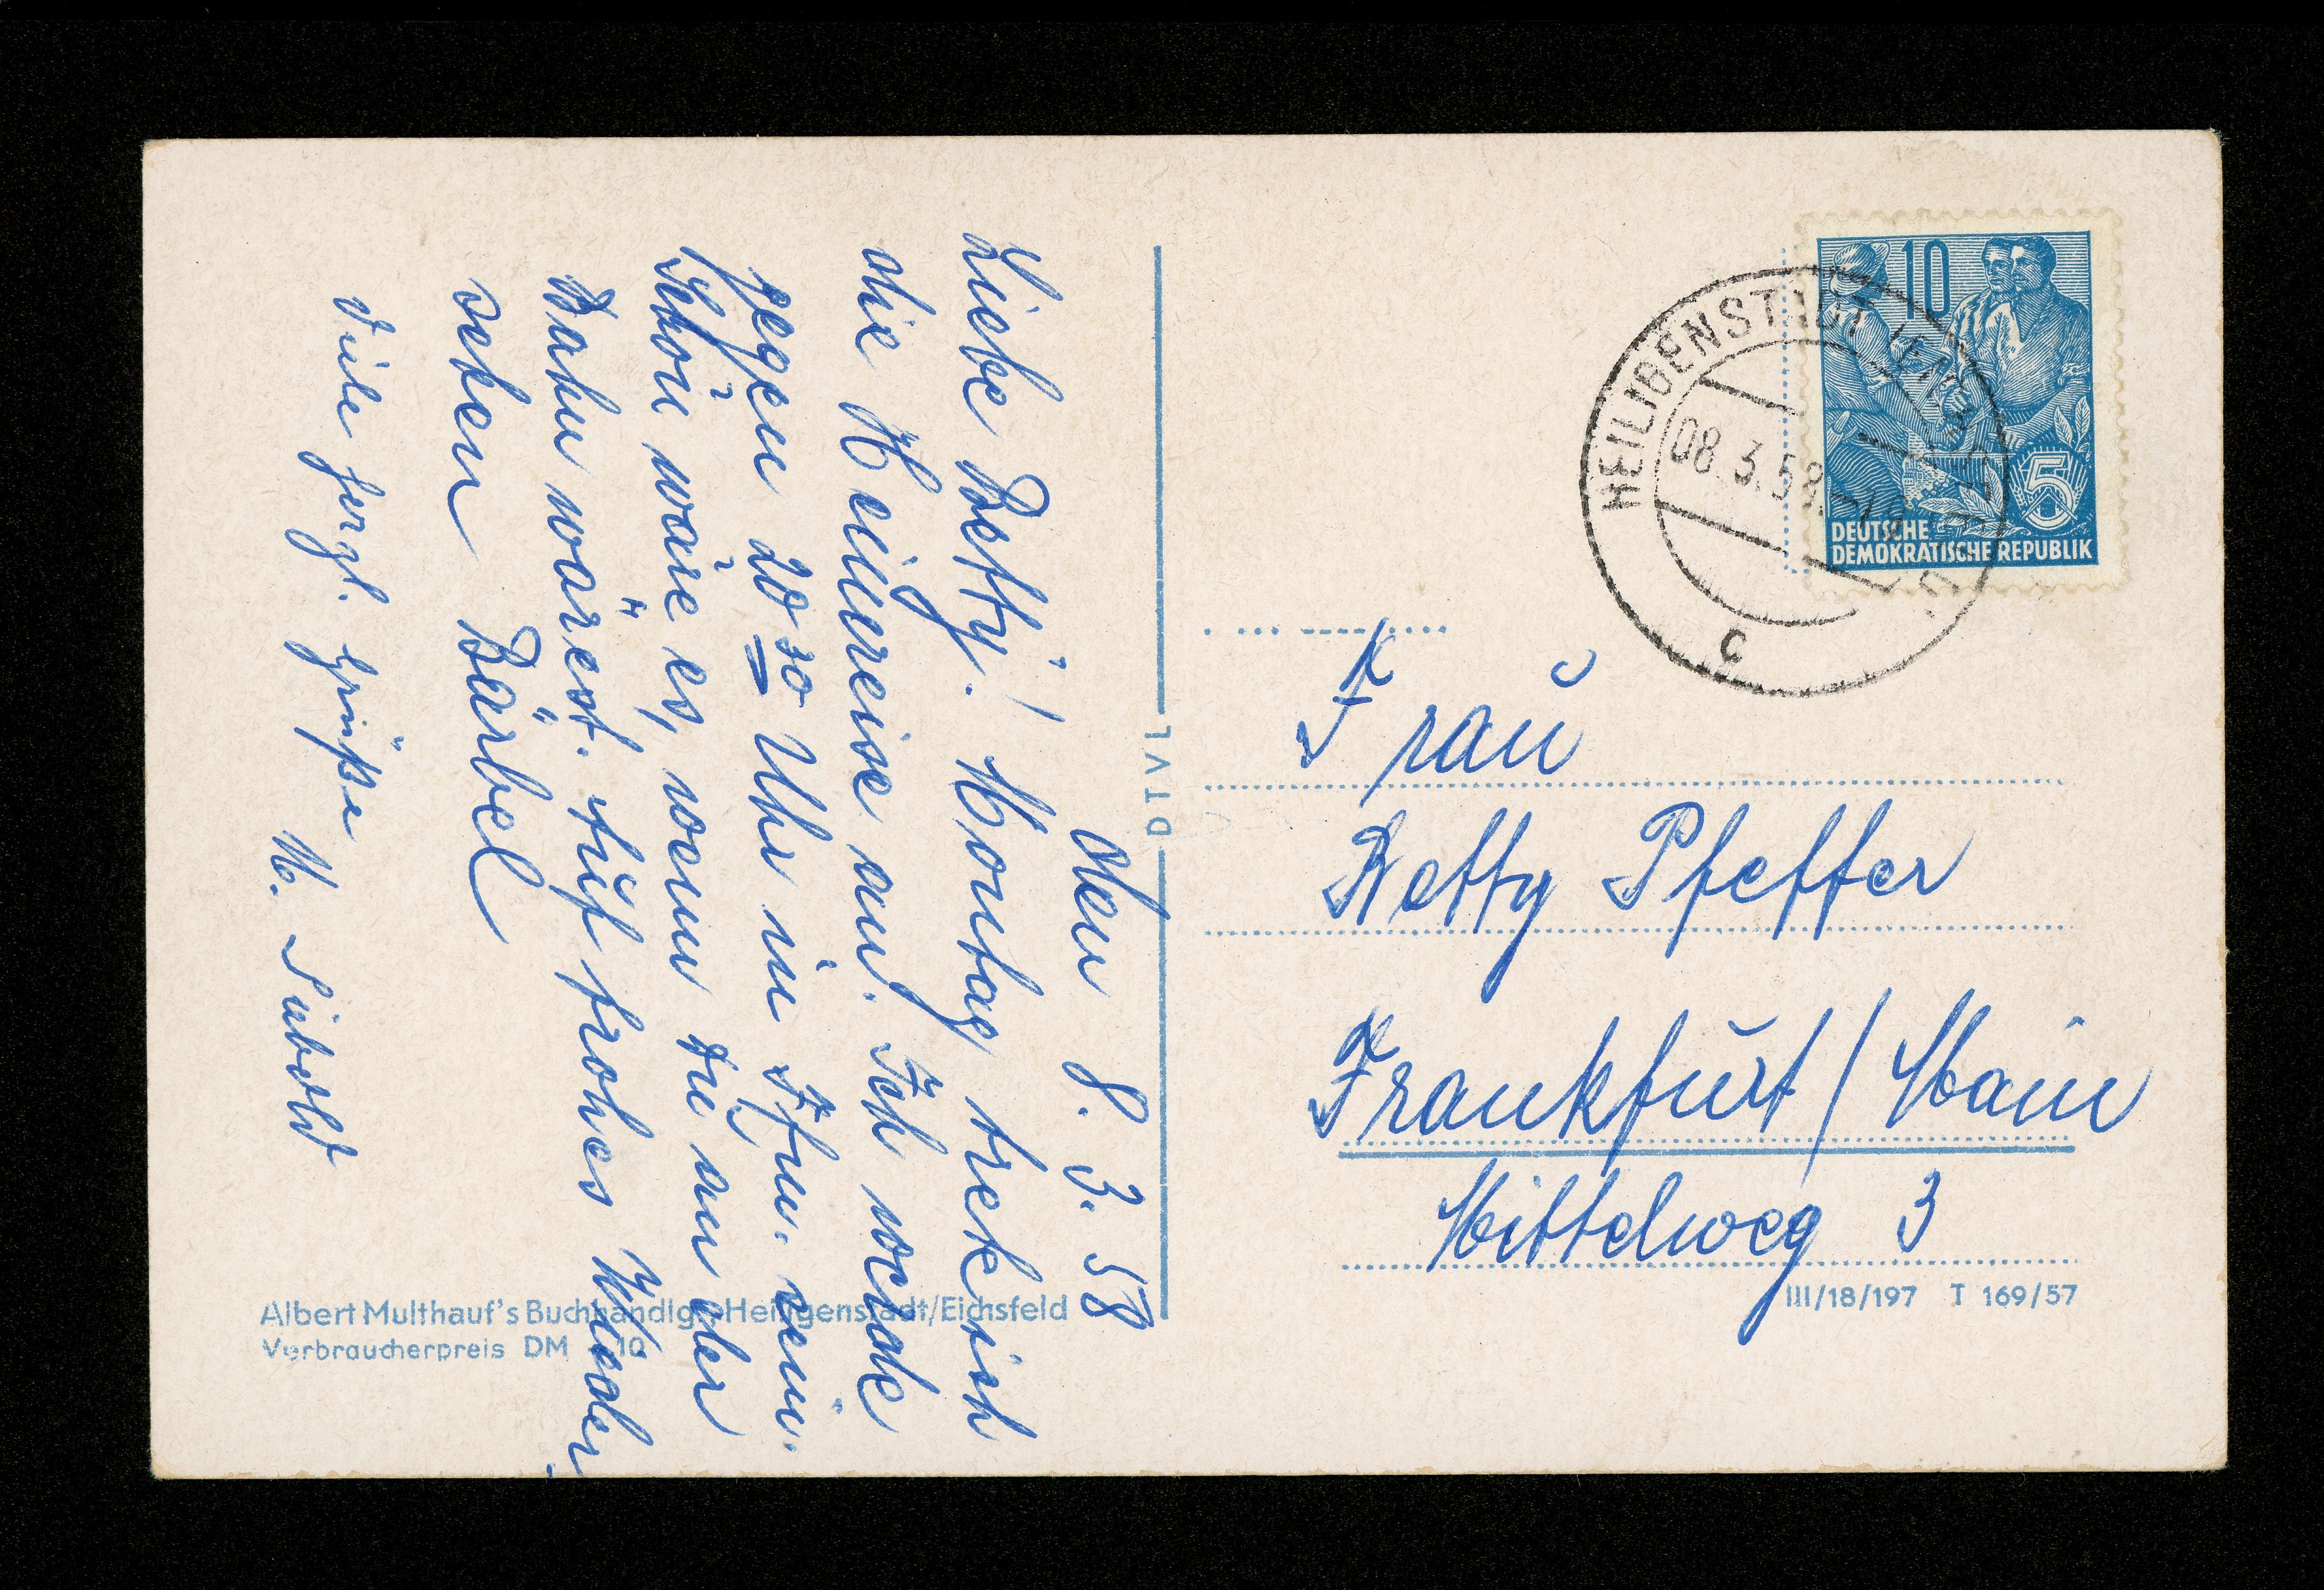 Den 8. 3. 58
Liebe Betty! Montag trete ich
die Heimreise an. Ich werde
gegen 20 30 Uhr in Ffm. sein.
Schön wäre es, wenn Du an der
Bahn wärest. Auf frohes Wieder-
sehen Bärbel
Viele herzl. Grüße
M. Siebold
Frau
Betty Pfeffer
Frankfurt/Main
Mittelweg 3
10
5
DEUTSCHE
DEMOKRATISCHE REPUBLIK
HEILIGENSTADT
08.3.58
c
DTVL
Albert Multhauf's Buchhandlg. Heiligenstadt/Eichsfeld
Verbraucherpreis DM 10
III/18/197 T 169/57